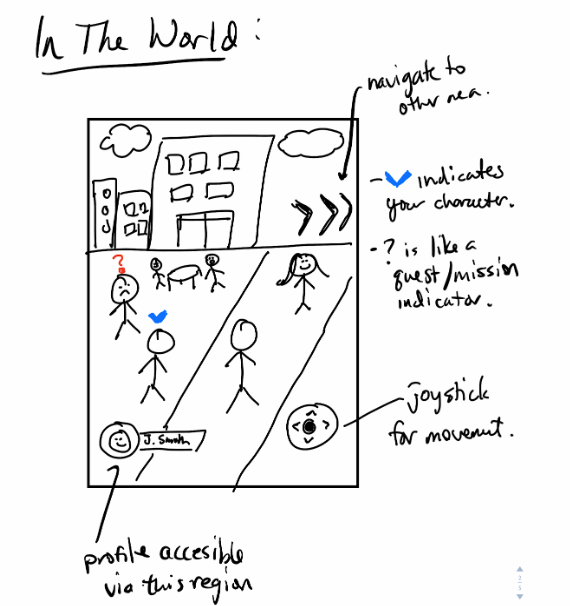 In The World:
navigate to
other area.
- indicates
your character.
- ? is like a
quest/mission
indicator.
?
J. Smith
joystick
for movement.
profile accesible
via this region